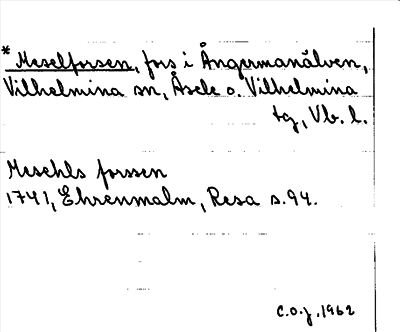 * Meselforsen, fors i Ångermanälven,
Vilhelmina sn, Åsele o. Vilhelmina
tg, Vb. l.
Meschls forssen
1741, Ehrenmalm, Resa s. 94.
C.O.J. 1962